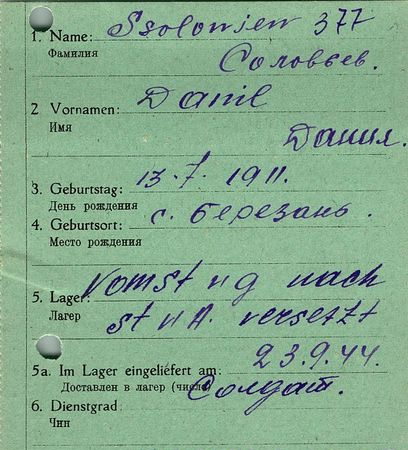 1. Name: Ssolowjew 377
Фамилия Соловьев.
2 Vornamen: Danil
Имя
Данил.
3. Geburtstag: 13.7.1911.
День рождения
4. Geburtsort: с. Березань.
Место рождения
5. Lager: vom st II G nach
Лагер st II A. versetzt
23.9.44.
5a. Im Lager eingeliefert am:
Доставлен в лагер (число)
Солдат.
6. Dienstgrad:
Чин